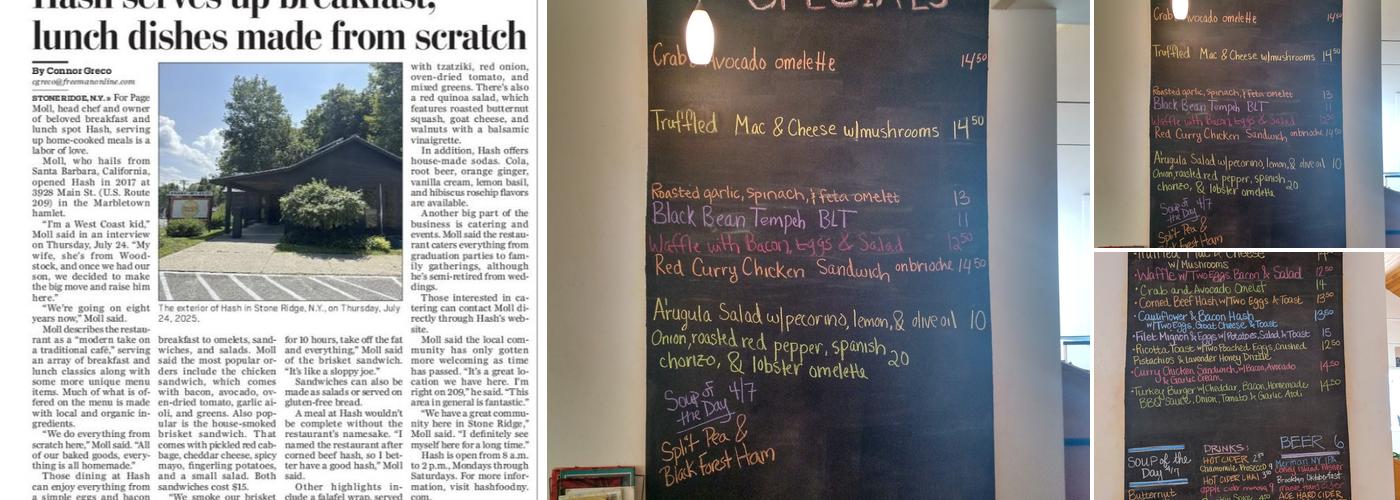 Hash serves up breakfast,
lunch dishes made from scratch
By Connor Greco
cgreco@freemanonline.com
STONE RIDGE, N.Y. » For Page
Moll, head chef and owner
of beloved breakfast and
lunch spot Hash, serving
up home-cooked meals is a
labor of love.
Moll, who hails from
Santa Barbara, California,
opened Hash in 2017 at
3928 Main St. (U.S. Route
209) in the Marbletown
hamlet.
“I’m a West Coast kid,”
Moll said in an interview
on Thursday, July 24. “My
wife, she’s from Wood-
stock, and once we had our
son, we decided to make
the big move and raise him
here.”
“We’re going on eight
years now,” Moll said.
Moll describes the restau-
rant as a “modern take on
a traditional café,” serving
an array of breakfast and
lunch classics along with
some more unique menu
items. Much of what is of-
fered on the menu is made
with local and organic in-
gredients.
“We do everything from
scratch here,” Moll said. “All
of our baked goods, every-
thing is all homemade.”
Those dining at Hash
can enjoy everything from
a simple eggs and bacon
The exterior of Hash in Stone Ridge, N.Y., on Thursday, July
24, 2025.
breakfast to omelets, sand-
wiches, and salads. Moll
said the most popular or-
ders include the chicken
sandwich, which comes
with bacon, avocado, ov-
en-dried tomato, garlic ai-
oli, and greens. Also pop-
ular is the house-smoked
brisket sandwich. That
comes with pickled red cab-
bage, cheddar cheese, spicy
mayo, fingerling potatoes,
and a small salad. Both
sandwiches cost $15.
“We smoke our brisket
for 10 hours, take off the fat
and everything,” Moll said
of the brisket sandwich.
“It’s like a sloppy joe.”
Sandwiches can also be
made as salads or served on
gluten-free bread.
A meal at Hash wouldn’t
be complete without the
restaurant’s namesake. “I
named the restaurant after
corned beef hash, so I bet-
ter have a good hash,” Moll
said.
Other highlights in-
clude a falafel wrap, served
with tzatziki, red onion,
oven-dried tomato, and
mixed greens. There’s also
a red quinoa salad, which
features roasted butternut
squash, goat cheese, and
walnuts with a balsamic
vinaigrette.
In addition, Hash offers
house-made sodas. Cola,
root beer, orange ginger,
vanilla cream, lemon basil,
and hibiscus rosehip flavors
are available.
Another big part of the
business is catering and
events. Moll said the restau-
rant caters everything from
graduation parties to fam-
ily gatherings, although
he’s semi-retired from wed-
dings.
Those interested in ca-
tering can contact Moll di-
rectly through Hash’s web-
site.
Moll said the local com-
munity has only gotten
more welcoming as time
has passed. “It’s a great lo-
cation we have here. I’m
right on 209,” he said. “This
area in general is fantastic.”
“We have a great commu-
nity here in Stone Ridge,”
Moll said. “I definitely see
myself here for a long time.”
Hash is open from 8 a.m.
to 2 p.m., Mondays through
Saturdays. For more infor-
mation, visit hashfoodny.
com.
SPECIALS
Crab Avocado omelette 14.50
Truffled Mac & Cheese w/mushrooms 14.50
Roasted garlic, spinach, & feta omelett 13
Black Bean Tempeh BLT 11
Waffle with Bacon, Eggs & Salad 12.50
Red Curry Chicken Sandwich on brioche 14.50
Arugula Salad w/pecorino, lemon, & olive oil 10
Onion, roasted red pepper, spanish
chorizo, & lobster omelette 20
Soup of
the Day 4/7
Split Pea &
Black Forest Ham
Crab Avocado omelette 14.50
Truffled Mac & Cheese w/mushrooms 14.50
Roasted garlic, spinach, & feta omelett 13
Black Bean Tempeh BLT 11
Waffle with Bacon, Eggs & Salad 12.50
Red Curry Chicken Sandwich on brioche 14.50
Arugula Salad w/pecorino, lemon, & olive oil 10
Onion, roasted red pepper, spanish
chorizo, & lobster omelette 20
Soup of
the Day 4/7
Split Pea &
Black Forest Ham
Truffled Mac & Cheese 14
w/Mushrooms
• Waffle w/Two Eggs, Bacon & Salad 12.50
• Crab and Avocado Omelet 14
• Corned Beef Hash w/Two Eggs & Toast 13.50
• Cauliflower & Bacon Hash 13.50
w/Two Eggs, Goat Cheese & Toast
• Filet Mignon & Eggs w/Potatoes, Salad & Toast 15
• Ricotta Toast w/Two Poached Eggs, crushed 12.50
Pistachios & Lavender Honey Drizzle
• Curry Chicken Sandwich, w/Bacon, Avocado 14.50
& Garlic Cream
• Turkey Burger w/Cheddar, Bacon, Homemade 14.50
BBQ Sauce, Onion, Tomato & Garlic Aioli
SOUP of the
Day
Butternut
DRINKS:
HOT CIDER
Chamomile Prosecco 9
HOT CIDER CHAI
BEER 6
Merman NY IPA
Coney Island Pilsner
Brooklyn Oktoberfest
ACE HARD CIDER